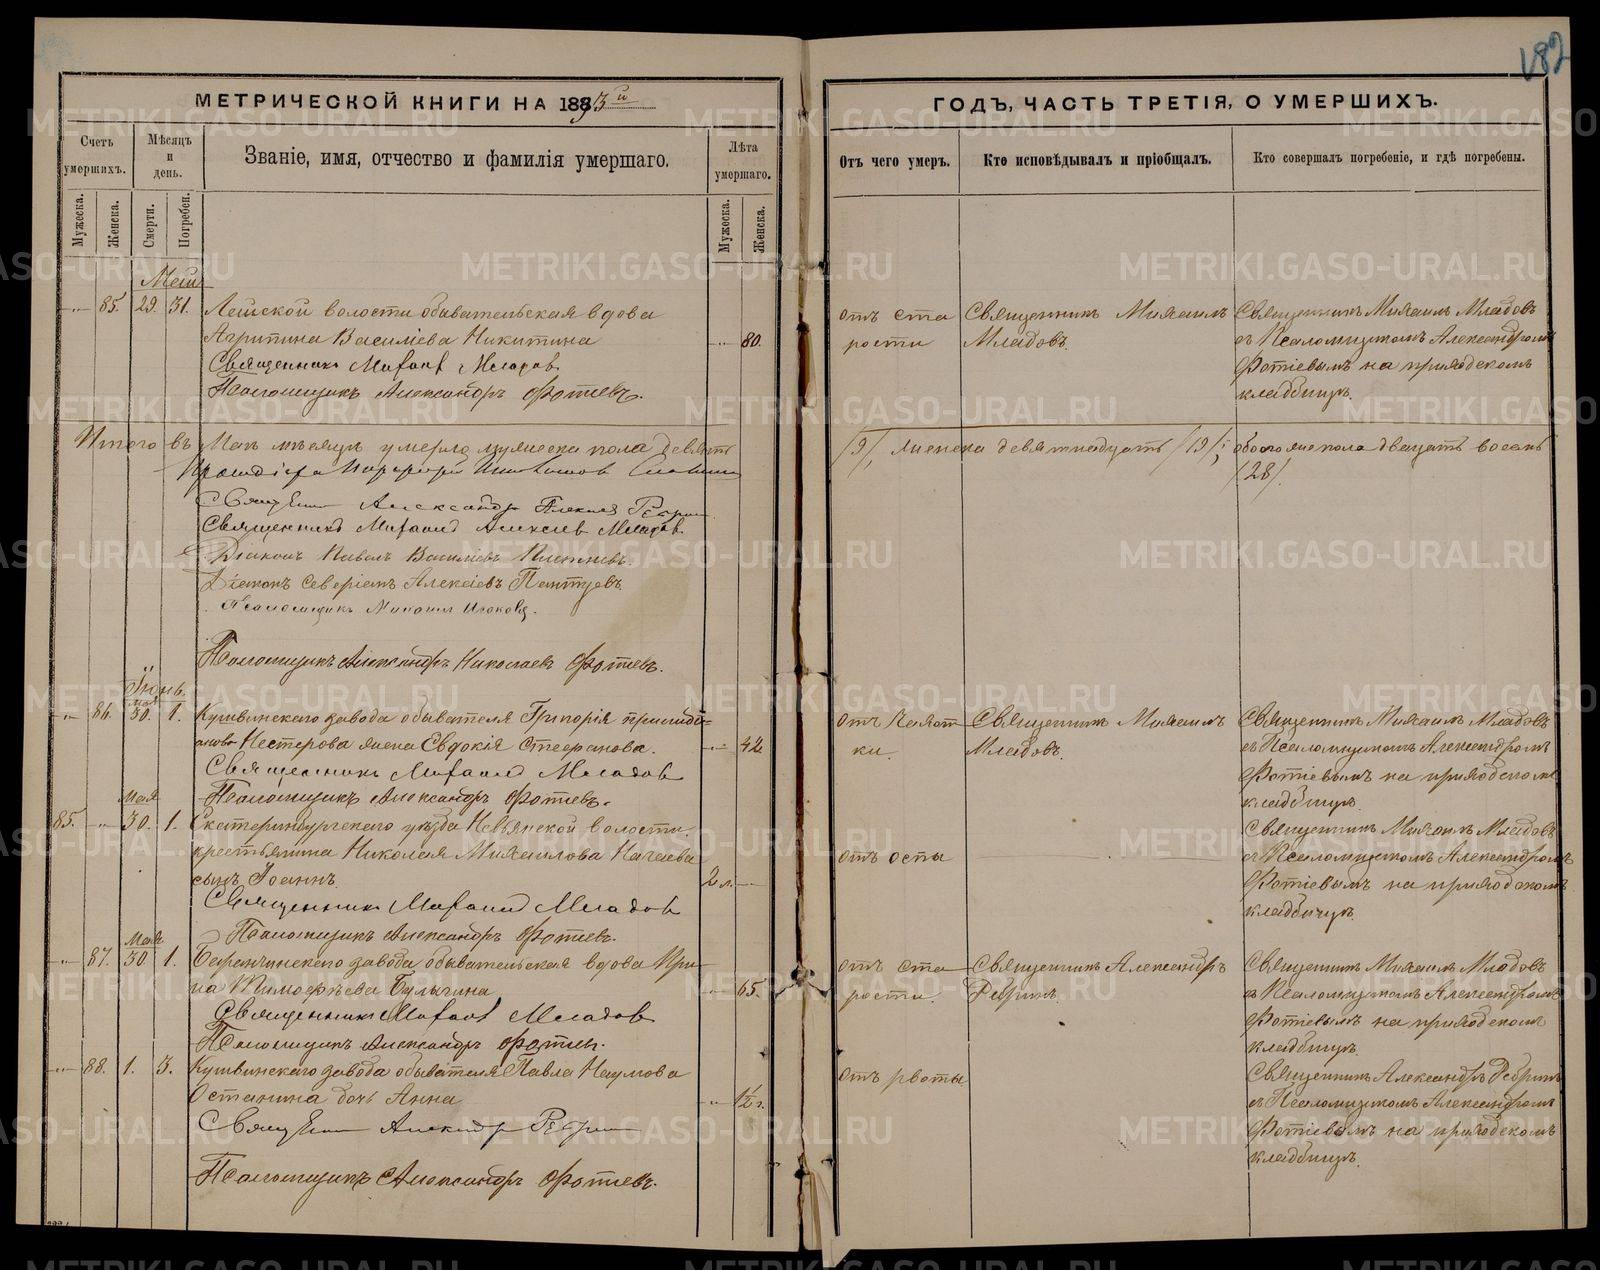 182
МЕТРИЧЕСКОЙ КНИГИ НА 1893 й
ГОДЪ, ЧАСТЬ ТРЕТІЯ, О УМЕРШИХЪ.
Счетъ умершихъ.
Мѣсяцъ и день.
Званіе, имя, отчество и фамилія умершаго.
Лѣта умершаго.
Отъ чего умеръ.
Кто исповѣдывалъ и пріобщалъ.
Кто совершалъ погребеніе, и гдѣ погребены.
Мужеска.
Женска.
Смерти.
Погребен.
Мужеска.
Женска.
85. 29. 31.
волости обывательская вдова
Агрипина Васильева Никитина
80.
отъ ста
рости
Священникъ Михаилъ
Младовъ.
Священникъ Михаилъ Младовъ
съ Псаломщикомъ Александромъ
Фотіевымъ на приходскомъ
кладбищѣ.
Священникъ Михаилъ Младовъ.
Псаломщикъ Александръ Фотіевъ.
Итого въ Маѣ мѣсяцѣ умерло мужеска пола девять
/9/, женска девятнадцать /19/; обоего пола двадцать восемь
/28/.
Священникъ Александръ Ребринъ
Священникъ Михаилъ Алексѣевъ Младовъ.
Діаконъ Павелъ Васильевъ
Діаконъ Северіанъ Алексѣевъ
Псаломщикъ
Псаломщикъ Александръ Николаевъ Фотіевъ.
Іюнь.
Мая
86. 30. 1.
Кушвинскаго завода обывателя Григорія
Нестерова жена Евдокія Стефанова.
42
отъ чахот
ки.
Священникъ Михаилъ
Младовъ.
Священникъ Михаилъ Младовъ
съ Псаломщикомъ Александромъ
Фотіевымъ на приходскомъ
кладбищѣ.
Священникъ Михаилъ Младовъ
Псаломщикъ Александръ Фотіевъ.
Мая
85. 30. 1.
Екатеринбургскаго уѣзда Невьянской волости
крестьянина Николая Михаилова Нагаева
сынъ Іоаннъ.
2 л.
отъ оспы
Священникъ Михаилъ Младовъ
съ Псаломщикомъ Александромъ
Фотіевымъ на приходскомъ
кладбищѣ.
Священникъ Михаилъ Младовъ
Псаломщикъ Александръ Фотіевъ.
Мая
87. 30 1.
Баранчинскаго завода обывательская вдова Ири-
на Тимофѣева Булычина
65.
отъ ста
рости.
Священникъ Александръ
Ребринъ.
Священникъ Михаилъ Младовъ
съ Псаломщикомъ Александромъ
Фотіевымъ на приходскомъ
кладбищѣ.
Священникъ Михаилъ Младовъ
Псаломщикъ Александръ Фотіевъ.
88. 1. 3.
Кушвинскаго завода обывателя Павла Наумова
Останина дочь Анна
1½ г.
отъ рвоты
Священникъ Александръ Ребринъ
съ Псаломщикомъ Александромъ
Фотіевымъ на приходскомъ
кладбищѣ.
Священникъ Александръ Ребринъ
Псаломщикъ Александръ Фотіевъ.
METRIKI.GASO-URAL.RU